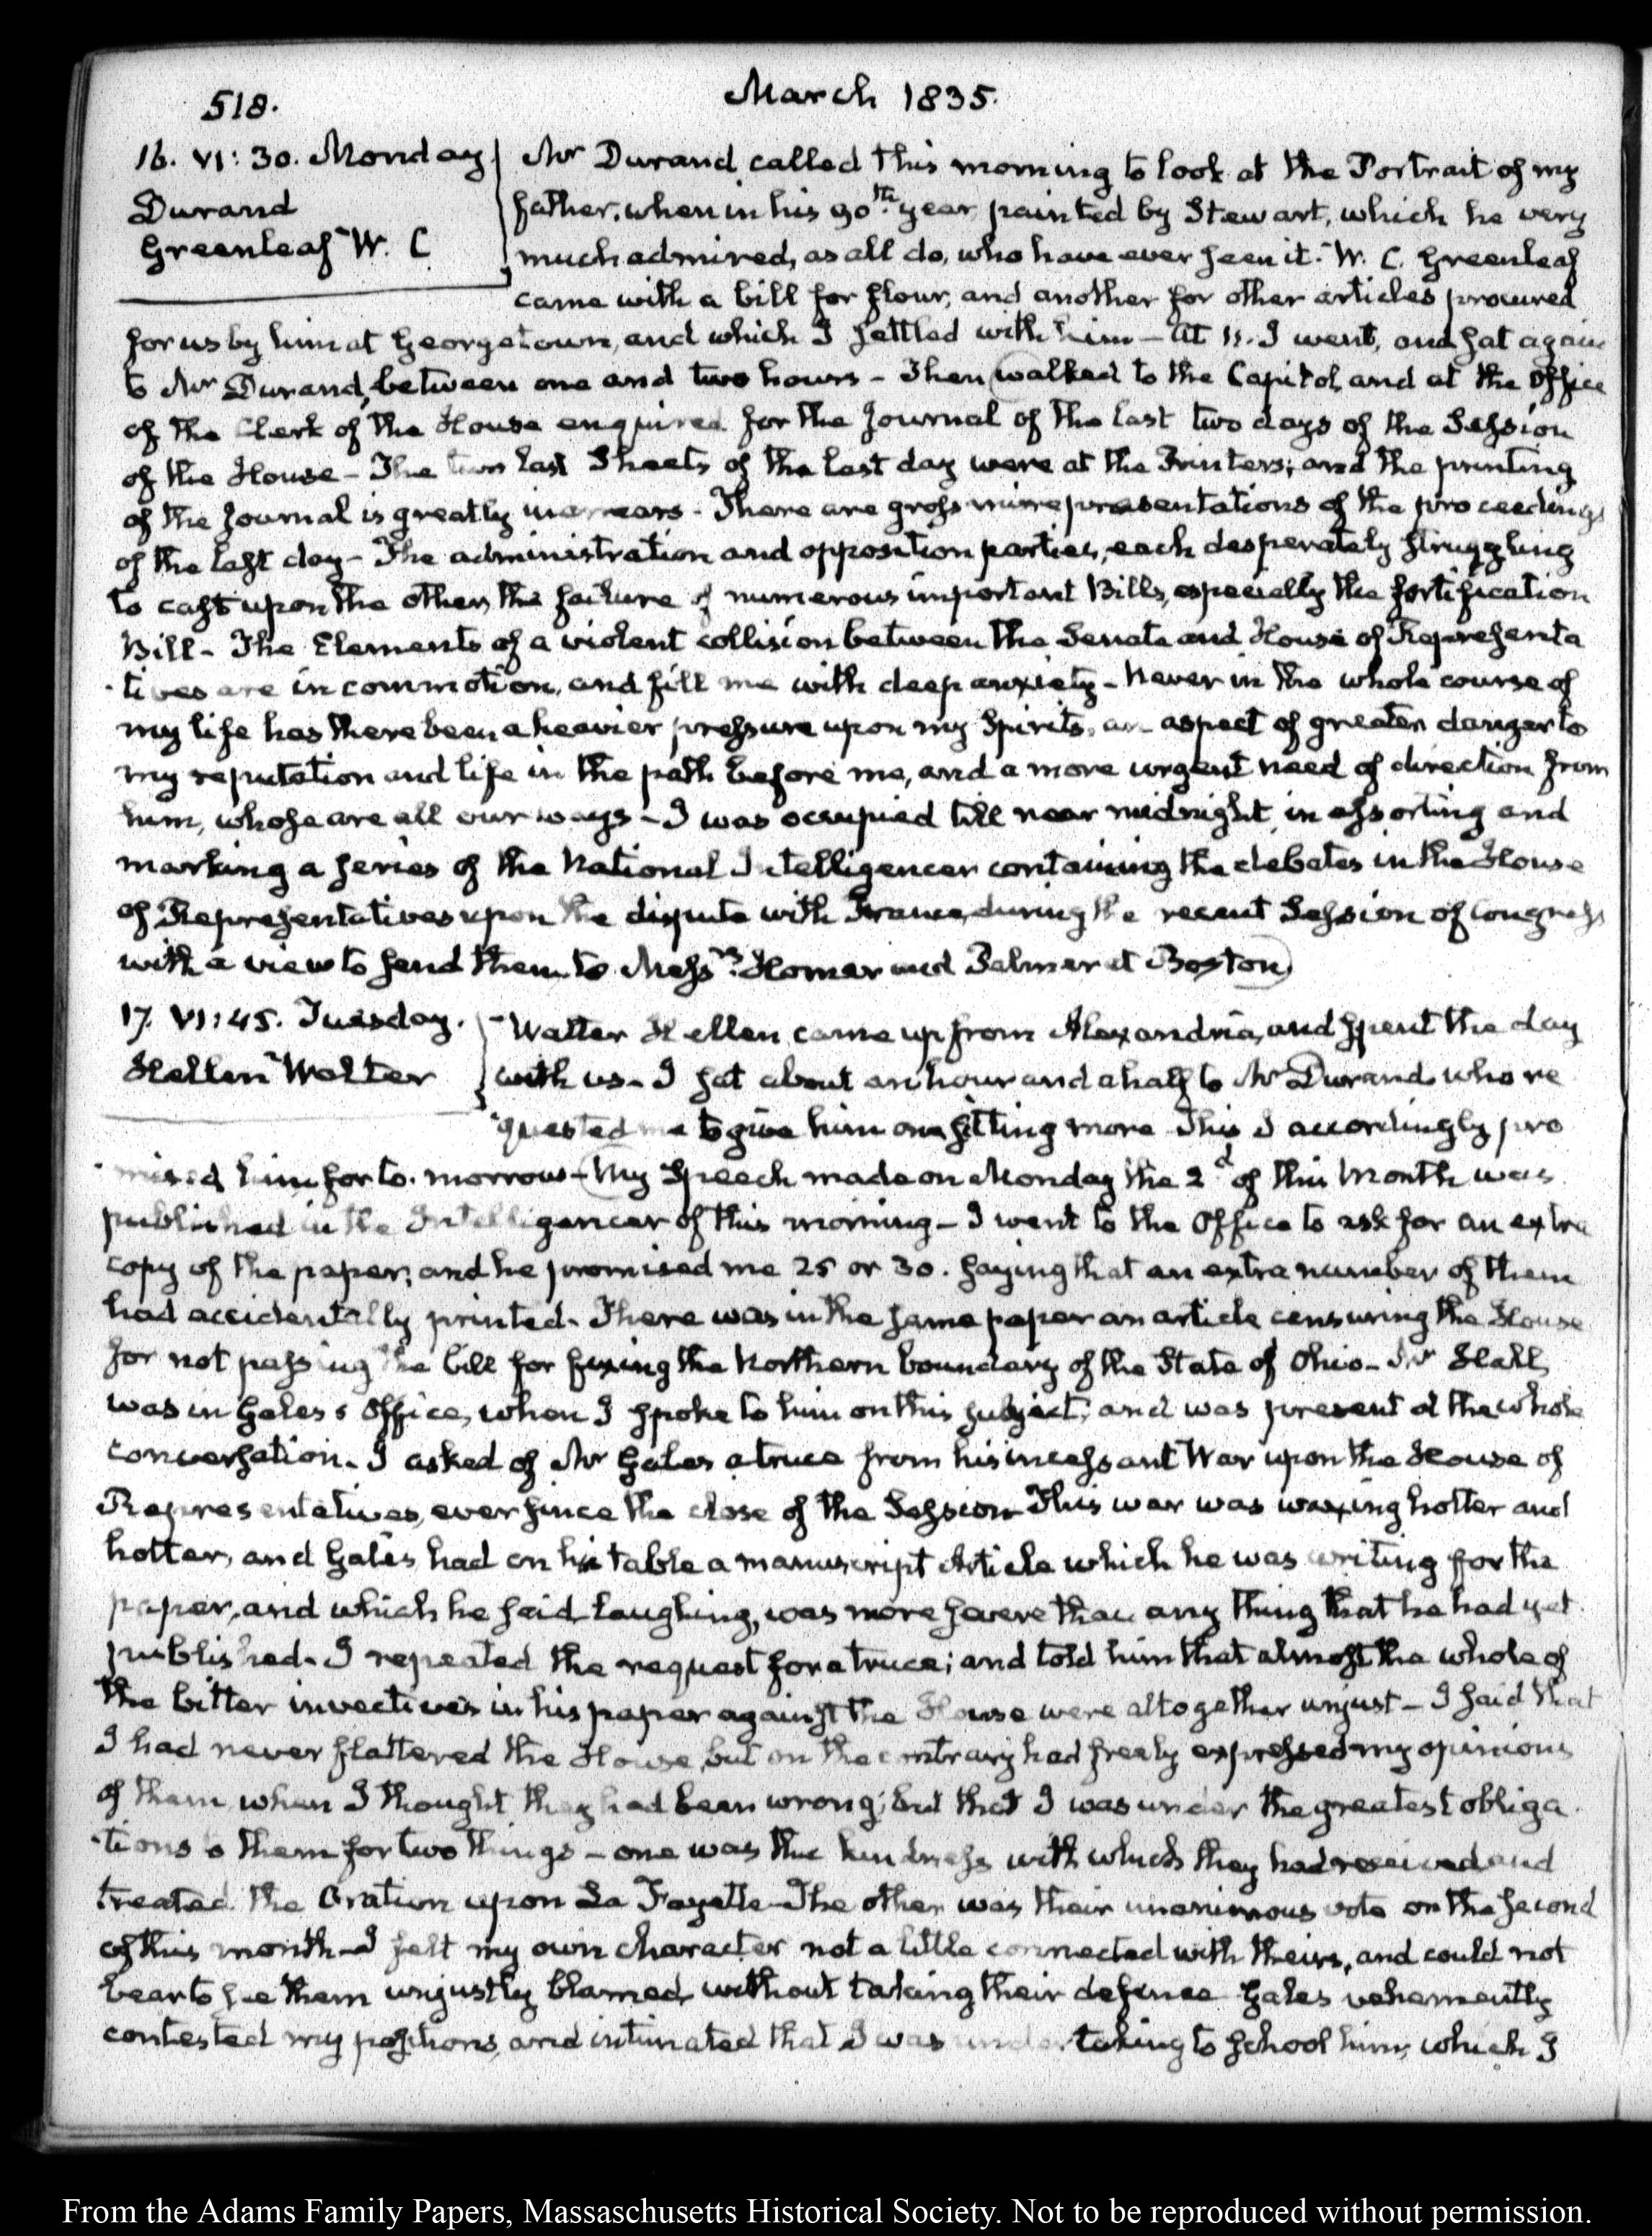 518.
March 1835.
16. VI: 30. Monday
Durand
Greenleaf W. C
Mr Durand called this morning to look at the Portrait of my
father, when in his 90th. year, painted by Stewart, which he very
much admired, as all do, who have ever seen it. W. C. Greenleaf
came with a bill for flour, and another for other articles procured
for us by him at Georgetown, and which I settled with him — At 11. I went, and sat again
to Mr Durand, between one and two hours — Then walked to the Capitol, and at the Office
of the Clerk of the House enquired for the Journal of the last two days of the Session
of the House — The two last Sheets of the last day were at the Printers; and the printing
of the Journal is greatly in arrears. There are gross misrepresentations of the proceedings
of the last day — The administration and opposition parties, each desperately struggling
to cast upon the other, the failure of numerous important Bills, especially the fortification
Bill — The Elements of a violent collision between the Senate and House of Representa
tives are in commotion, and fill me with deep anxiety — Never in the whole course of
my life has there been a heavier pressure upon my Spirits, an aspect of greater danger to
my reputation and life in the path before me, and a more urgent need of direction from
him, whose are all our ways — I was occupied till near midnight, in assorting and
marking a series of the National Intelligencer containing the debates in the House
of Representatives upon the dispute with France, during the recent Session of Congress
with a view to send them to Messrs. Homer and Palmer at Boston
17. VI: 45. Tuesday.
Hellen Walter
Walter Hellen came up from Alexandria, and spent the day
with us — I sat about an hour and a half to Mr Durand who re
quested me to give him one sitting more This I accordingly pro
mised him for to-morrow — My Speech made on Monday the 2d of this Month was
published in the Intelligencer of this morning — I went to the Office to ask for an extra
copy of the paper; and he promised me 25 or 30. saying that an extra number of them
had accidentally printed. There was in the same paper an article censuring the House
for not passing the bill for fixing the Northern boundary of the State of Ohio — Hall
was in Gales's Office, when I spoke to him on this subject; and was present at the whole
conversation. I asked of Mr Gales a truce from his incessant War upon the House of
Representatives, ever since the close of the Session This war was waxing hotter and
hotter, and Gales had on his table a manuscript Article which he was writing for the
paper, and which he said laughing, was more severe than any thing that he had yet
published. I repeated the request for a truce; and told him that almost the whole of
the bitter invectives in his paper against the House were altogether unjust — I said that
I had never flattered the House, but on the contrary had freely expressed my opinions
of them, when I thought they had been wrong; but that I was under the greatest obliga
tions to them for two things — one was the kindness with which they had received and
treated the Oration upon La Fayette The other was their unanimous vote on the second
of this month — I felt my own character not a little connected with theirs, and could not
bear to see them unjustly blamed, without taking their defence Gales vehemently
contested my positions, and intimated that I was undertaking to school him; which I
From the Adams Family Papers, Massachusetts Historical Society. Not to be reproduced without permission.